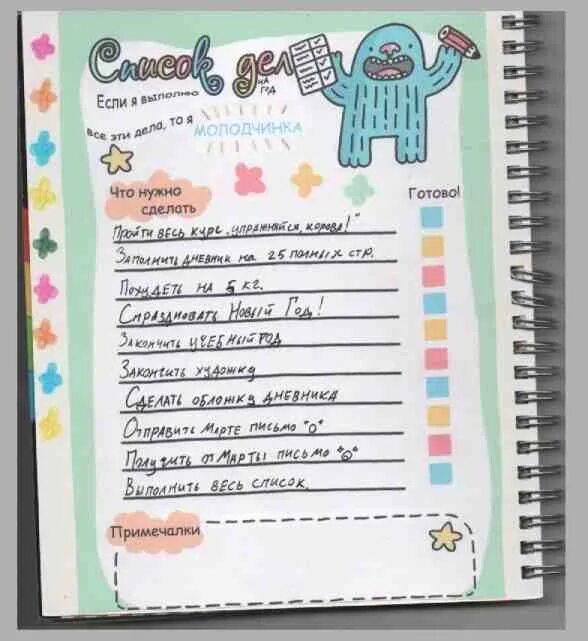 Список дел
на
год
Если я выполню
все эти дела, то я
МОЛОДЧИНКА
Что нужно
сделать
Готово!
Пройти весь курс „упражняйся, корова!"
Заполнить дневник на 25 полных стр.
Похудеть на 5 кг.
Спраздновать Новый Год!
Закончить учебный год
Закончить художку
Сделать обложку дневника
Отправить Марте письмо "О"
Получить от Марты письмо
Выполнить весь список.
Примечалки